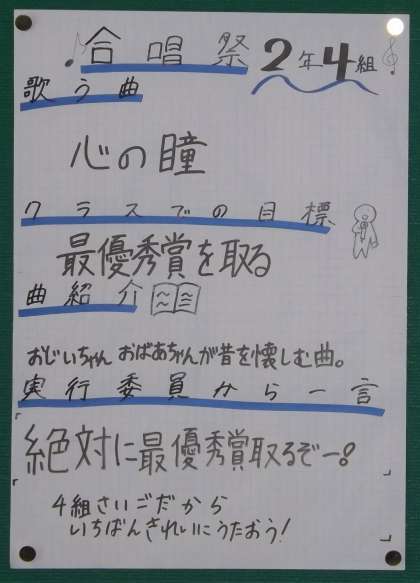 合唱祭 2年4組
歌う曲
心の瞳
クラスでの目標
最優秀賞を取る
曲紹介
おじいちゃん おばあちゃんが昔を懐しむ曲。
実行委員から一言
絶対に最優秀賞取るぞー!
4組さいごだから
いちばんきれいにうたおう!